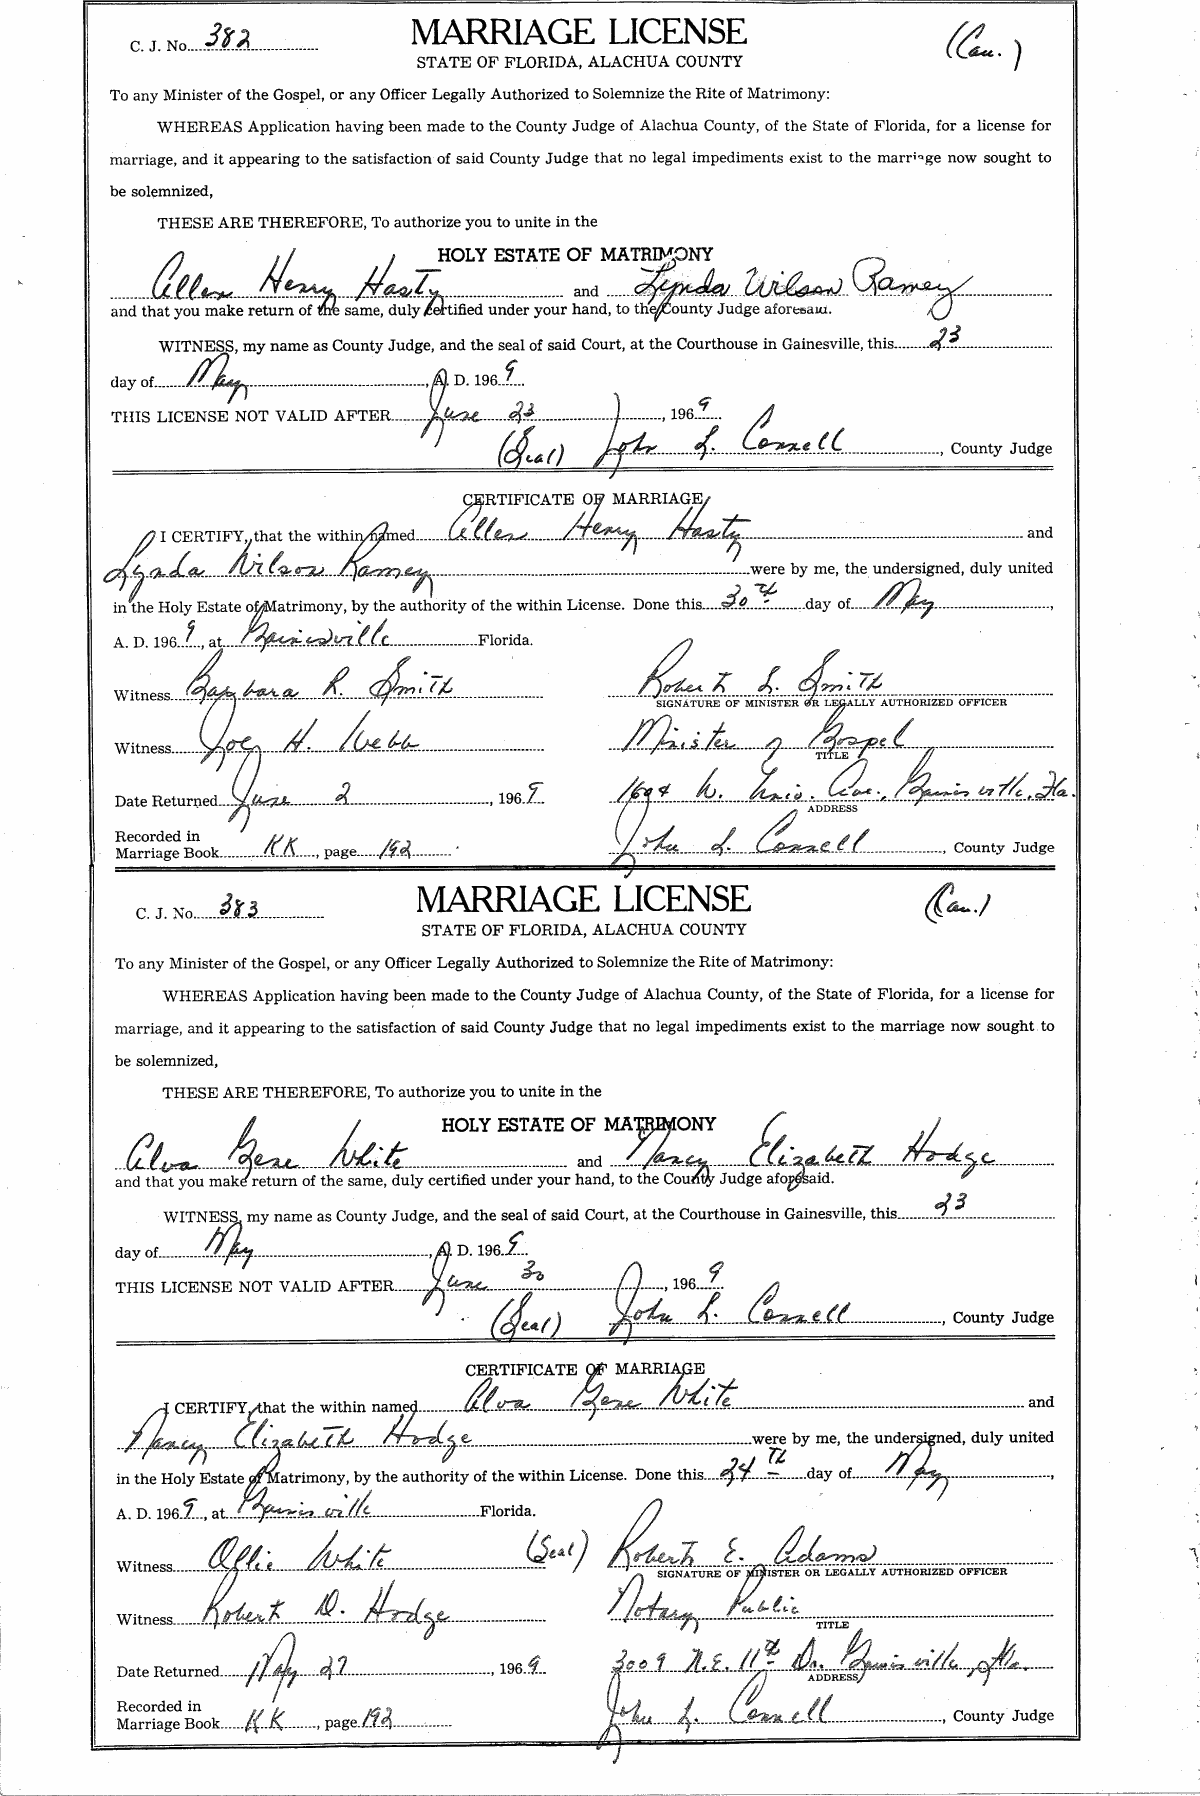 C. J. No. 382
MARRIAGE LICENSE
(Cau.)
STATE OF FLORIDA, ALACHUA COUNTY
To any Minister of the Gospel, or any Officer Legally Authorized to Solemnize the Rite of Matrimony:
WHEREAS Application having been made to the County Judge of Alachua County, of the State of Florida, for a license for
marriage, and it appearing to the satisfaction of said County Judge that no legal impediments exist to the marriage now sought to
be solemnized,
THESE ARE THEREFORE, To authorize you to unite in the
HOLY ESTATE OF MATRIMONY
Allen Henry Hasty and Lynda Wilson Ramey
and that you make return of the same, duly certified under your hand, to the County Judge aforesaid.
WITNESS, my name as County Judge, and the seal of said Court, at the Courthouse in Gainesville, this 23
day of May, A. D. 1969
THIS LICENSE NOT VALID AFTER June 23, 1969
(Seal) John L. Connell, County Judge
CERTIFICATE OF MARRIAGE
I CERTIFY, that the within named Allen Henry Hasty and
Lynda Wilson Ramey were by me, the undersigned, duly united
in the Holy Estate of Matrimony, by the authority of the within License. Done this 30th day of May,
A. D. 1969, at Gainesville Florida.
Witness Barbara R. Smith Robert L. Smith
SIGNATURE OF MINISTER OR LEGALLY AUTHORIZED OFFICER
Witness Joey H. Webb Minister of Gospel
TITLE
Date Returned June 2, 1969 1604 W. Univ. Ave., Gainesville, Fla.
ADDRESS
Recorded in
Marriage Book KK, page 192 John L. Connell, County Judge
C. J. No. 383
MARRIAGE LICENSE
(Cau.)
STATE OF FLORIDA, ALACHUA COUNTY
To any Minister of the Gospel, or any Officer Legally Authorized to Solemnize the Rite of Matrimony:
WHEREAS Application having been made to the County Judge of Alachua County, of the State of Florida, for a license for
marriage, and it appearing to the satisfaction of said County Judge that no legal impediments exist to the marriage now sought to
be solemnized,
THESE ARE THEREFORE, To authorize you to unite in the
HOLY ESTATE OF MATRIMONY
Alva Gene White and Nancy Elizabeth Hodge
and that you make return of the same, duly certified under your hand, to the County Judge aforesaid.
WITNESS, my name as County Judge, and the seal of said Court, at the Courthouse in Gainesville, this 23
day of May, A. D. 1969
THIS LICENSE NOT VALID AFTER June 30, 1969
(Seal) John L. Connell, County Judge
CERTIFICATE OF MARRIAGE
I CERTIFY, that the within named Alva Gene White and
Nancy Elizabeth Hodge were by me, the undersigned, duly united
in the Holy Estate of Matrimony, by the authority of the within License. Done this 24th day of May,
A. D. 1969, at Gainesville Florida.
Witness Ollie White (Seal) Robert E. Adams
SIGNATURE OF MINISTER OR LEGALLY AUTHORIZED OFFICER
Witness Robert D. Hodge Notary Public
TITLE
Date Returned May 27, 1969 3009 N.E. 11th Dr. Gainesville, Fla.
ADDRESS
Recorded in
Marriage Book KK, page 192 John L. Connell, County Judge